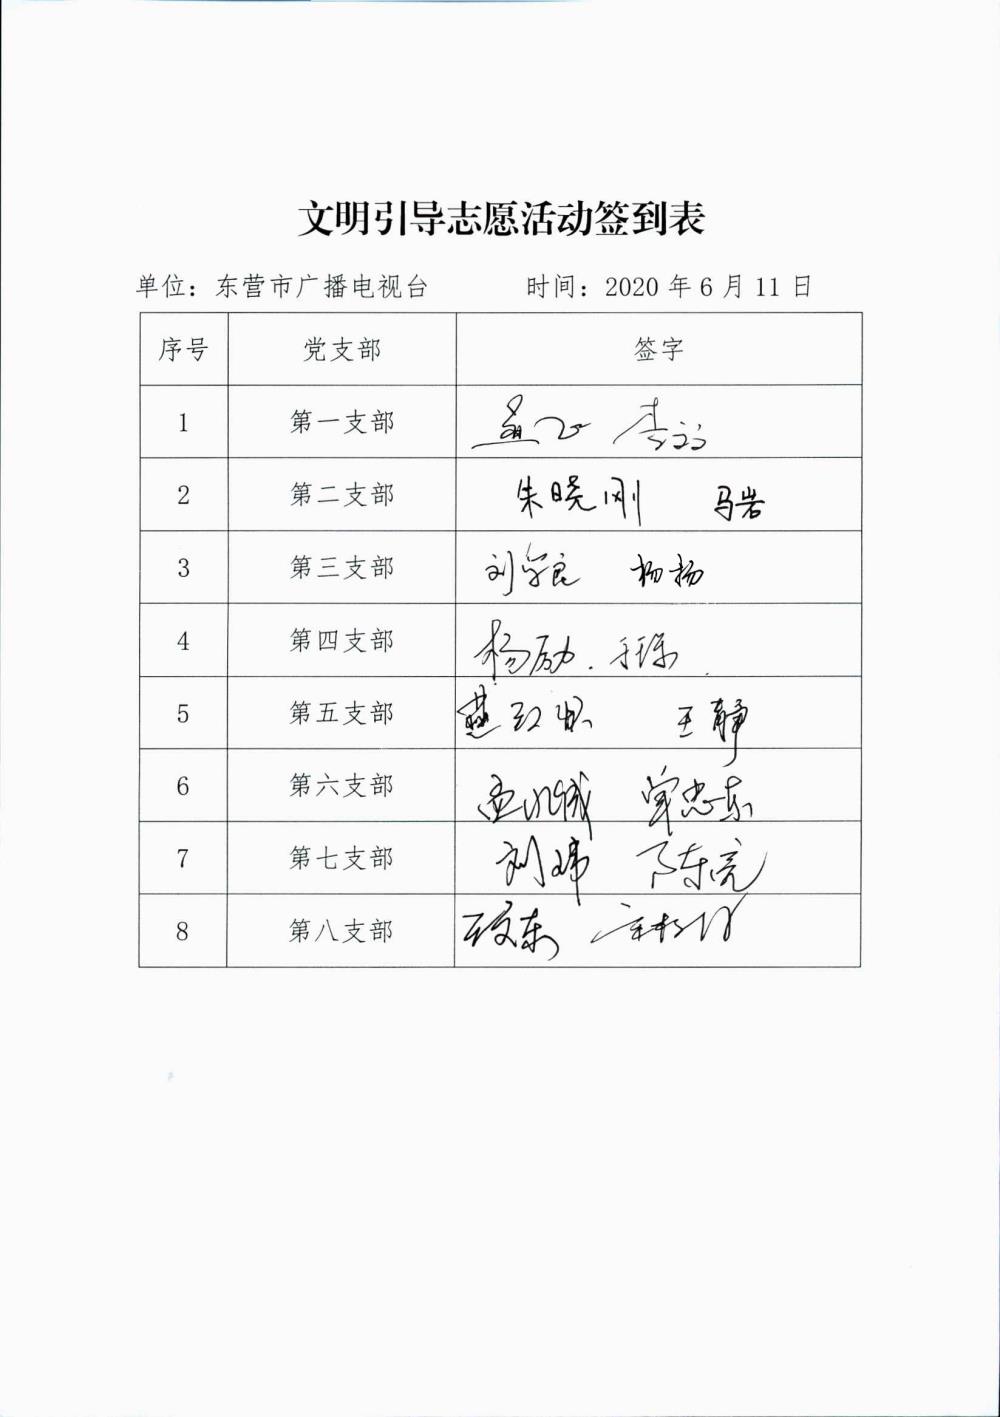 文明引导志愿活动签到表
单位：东营市广播电视台 时间：2020 年 6 月 11 日
序号 党支部 签字
1 第一支部
2 第二支部 朱晓刚 马岩
3 第三支部 刘学良 杨杨
4 第四支部 杨励
5 第五支部 王静
6 第六支部
7 第七支部 刘玮 陈亮
8 第八支部